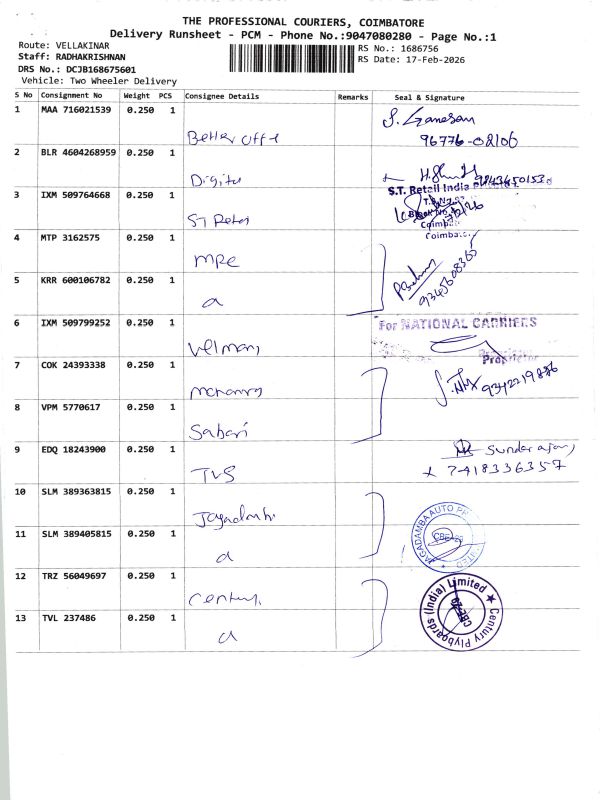 THE PROFESSIONAL COURIERS, COIMBATORE
Delivery Runsheet - PCM - Phone No.:9047080280 - Page No.:1
Route: VELLAKINAR
RS No.: 1686756
Staff: RADHAKRISHNAN
RS Date: 17-Feb-2026
DRS No.: DCJB168675601
Vehicle: Two Wheeler Delivery
S No Consignment No Weight PCS Consignee Details Remarks Seal & Signature
1 MAA 716021539 0.250 1 S. Ganesan
96776-02106
2 BLR 4604268959 0.250 1
S.T. Retail India
3 IXM 509764668 0.250 1
ST Retail
Coimbatore
4 MTP 3162575 0.250 1
MPE
5 KRR 600106782 0.250 1
a
6 IXM 509799252 0.250 1 For NATIONAL CARRIERS
Proprietor
7 COK 24393338 0.250 1
8 VPM 5770617 0.250 1
Sabari
9 EDQ 18243900 0.250 1
TVS 7418336357
10 SLM 389363815 0.250 1
Jagadamba
JAGADAMBA AUTO
11 SLM 389405815 0.250 1
a
12 TRZ 56049697 0.250 1
Century
Century Plyboards (India) Limited
CBE-29
13 TVL 237486 0.250 1
a